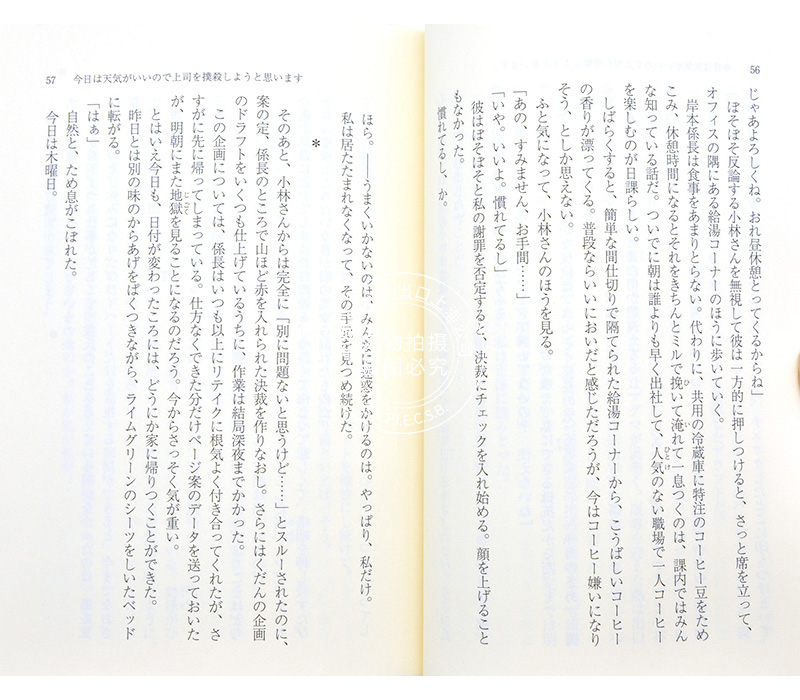 56
じゃあよろしくね。おれ昼休憩とってくるからね」
ぼそぼそ反論する小林さんを無視して彼は一方的に押しつけると、さっと席を立って、
オフィスの隅にある給湯コーナーのほうに歩いていく。
岸本係長は食事をあまりとらない。代わりに、共用の冷蔵庫に特注のコーヒー豆をため
こみ、休憩時間になるとそれをきちんとミルで挽いて淹れて一息つくのは、課内ではみん
な知っている話だ。ついでに朝は誰よりも早く出社して、人気のない職場で一人コーヒー
を楽しむのが日課らしい。
しばらくすると、簡単な間仕切りで隔てられた給湯コーナーから、こうばしいコーヒー
の香りが漂ってくる。普段ならいいにおいだと感じただろうが、今はコーヒー嫌いになり
そう、としか思えない。
ふと気になって、小林さんのほうを見る。
「あの、すみません、お手間……」
「いや。いいよ。慣れてるし」
彼はぼそぼそと私の謝罪を否定すると、決裁にチェックを入れ始める。顔を上げること
もなかった。
慣れてるし、か。
57 今日は天気がいいので上司を撲殺しようと思います
ほら。――うまくいかないのは、みんなに迷惑をかけるのは。やっぱり、私だけ。
私は居たたまれなくなって、その手元を見つめ続けた。
*
そのあと、小林さんからは完全に「別に問題ないと思うけど……」とスルーされたのに、
案の定、係長のところで山ほど赤を入れられた決裁を作りなおし。さらにはくだんの企画
のドラフトをいくつも仕上げているうちに、作業は結局深夜までかかった。
この企画については、係長はいつも以上にリテイクに根気よく付き合ってくれたが、さ
すがに先に帰ってしまっている。仕方なくできた分だけページ案のデータを送っておいた
が、明朝にまた地獄を見ることになるのだろう。今からさっそく気が重い。
とはいえ今日も、日付が変わったころには、どうにか家に帰りつくことができた。
昨日とは別の味のからあげをぱくつきながら、ライムグリーンのシーツをしいたベッド
に転がる。
「はぁ」
自然と、ため息がこぼれた。
今日は木曜日。